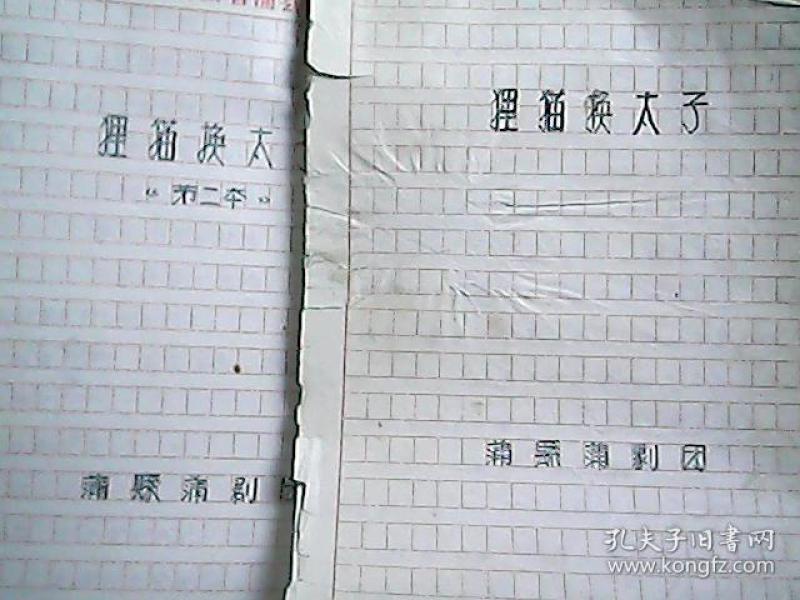 狸猫换太
“第二本”
蒲县蒲剧团
狸猫换太子
蒲县蒲剧团
孔夫子旧书网
www.kongfz.com